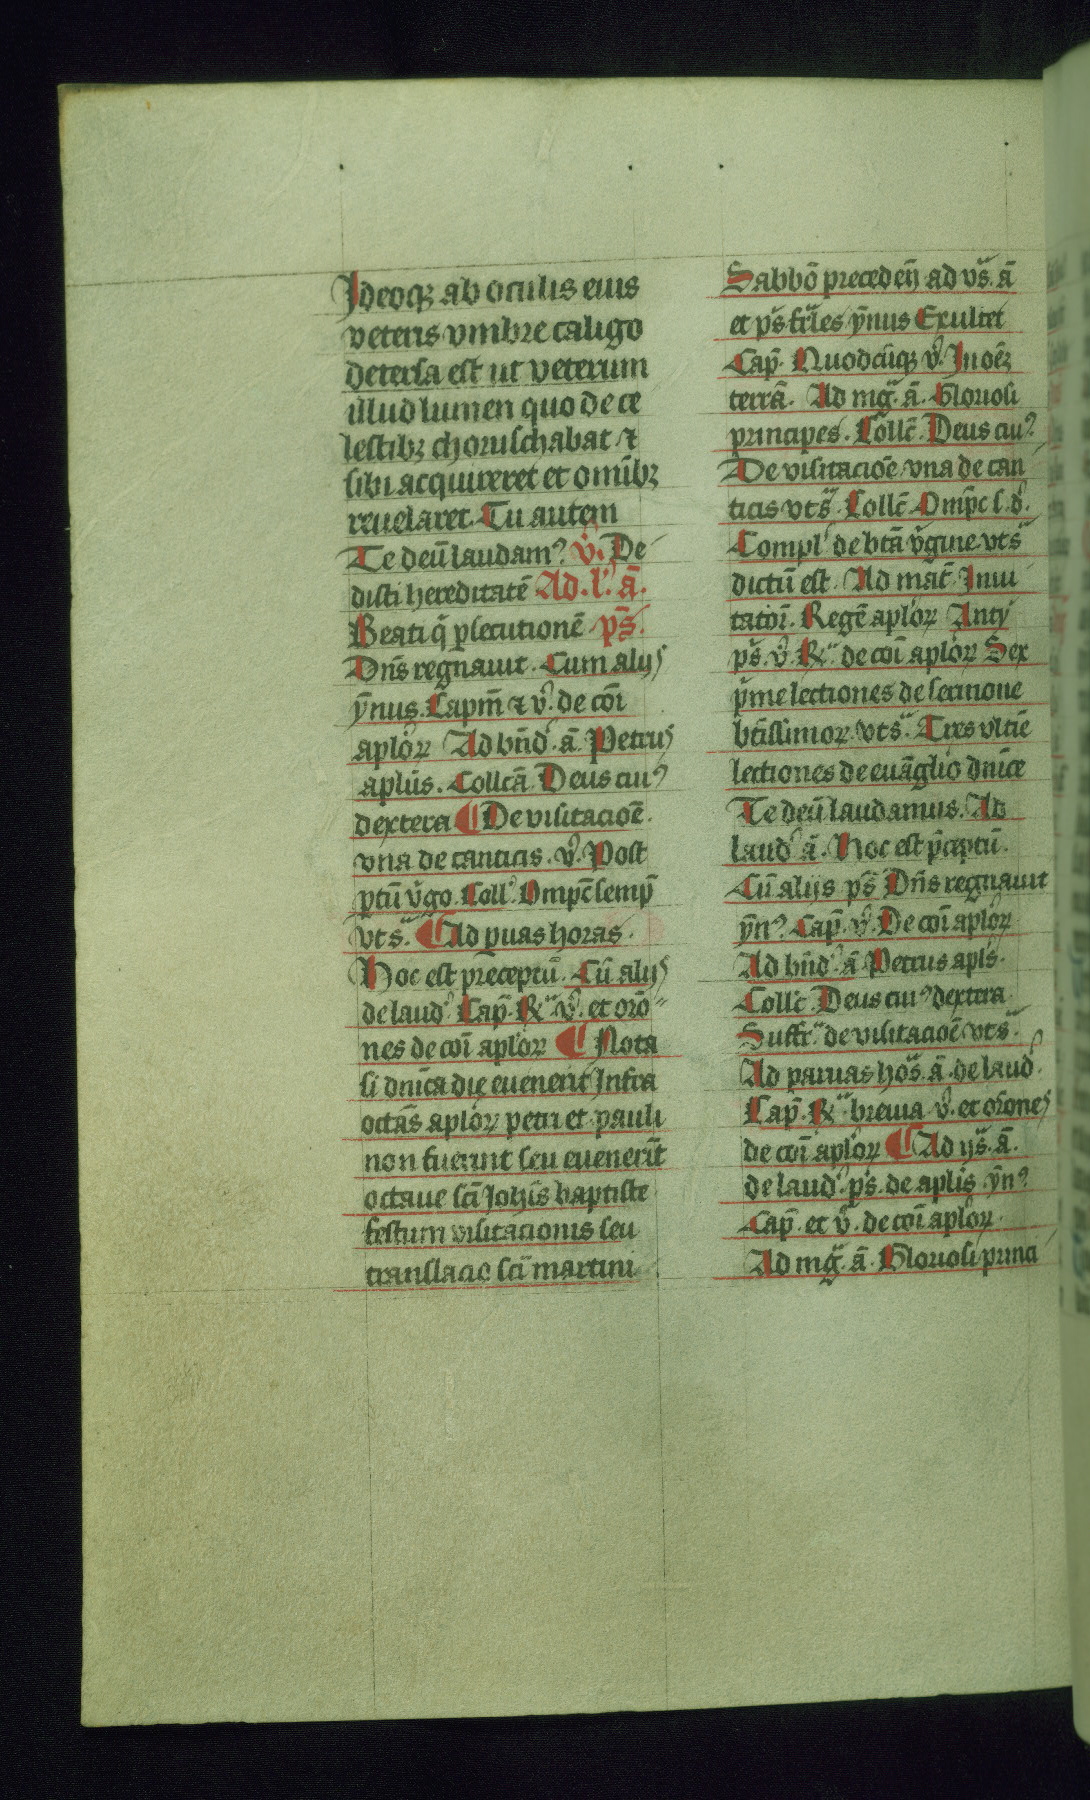 Ideoqꝫ ab oculis eius
veteris vmbre caligo
detersa est ut veterum
illud lumen quo de ce
lestibꝫ choruschabat ⁊
sibi acquireret et omībꝫ
reuelaret. Tu autem
Te deū laudamꝰ v̓. De
disti hereditatē Ad .l'. ā.
Beati q̄ ꝑsecutionē p̄s.
Dn̄s regnauit. Cum alijs
ẏnus. Capm̄ ⁊ v̓. de cōi
aplōꝝ Ad bn̄d'. ā. Petrus
aplūs. Collcā Deus cuiꝰ
dextera ¶ De visitacioē.
vna de canticis. v̓. Post
ptū v̓go. Coll'. Omp̄c semꝑ
vts̄. ¶ Ad ꝑuas horas.
Hoc est preceptū. Cū alijs
de laud' Cap̄. R̄ v̓. et orō
nes de cōi aplōꝝ ¶ Nota
si dn̄ica die euenerit Infra
octās aplōꝝ petri et pauli
non fuerint seu euenerīt
octaue scī Joh̄is baptiste
festum visitacionis seu
translacio scī martini
Sabbō precedēti ad vs̄. ā
et p̄s fr̄les ẏnus Exultet
Cap̄. Quodcūqꝫ v̓. In oēꝫ
terrā. Ad mḡ. ā. Gloriosi
principes. Collc̄. Deus cuiꝰ
De visitacioē vna de can
ticis vts̄. Collc̄ Omp̄c s. d'.
Compl' de btā v̓gine. vts̄
dictū est. Ad māt̄. Inui
tatoī. Regē aplōꝝ Anty
p̄s. v̓. R̄ de cōi aplōꝝ Sex
p̓me lectiones de sermone
btīssimoꝝ vts̄. Tres vltīe
lectiones de euāglio dn̄ice
Te deū laudamus. Ad
laud' ā. Hoc est p̄ceptū.
Cū alijs p̄s Dn̄s regnauit
ẏnꝰ. Cap̄. v̓. De cōi aplōꝝ
Ad bn̄d' ā Petrus apl̄s.
Collc̄. Deus cuiꝰ dextera
Suffr̄. de visitacioē vts̄.
Ad paruas hōs. ā. de laud'.
Cap̄. R̄ breuia v̓. et orōnes
de cōi aplōꝝ ¶ Ad ijs̄. ā.
de laud'. p̄s. de aplis̄ ẏnꝰ
Cap̄. et v̓. de cōi aplōꝝ.
Ad mḡ. ā. Gloriosi princi